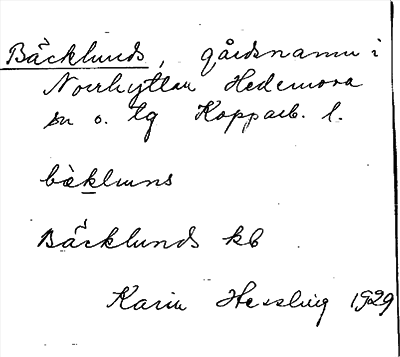 Bäcklunds, gårdsnamn i
Norrhyttan Hedemora
sn o. tg Kopparb. l.
bäkluns
Bäcklunds kb
Karin Hessling 1929